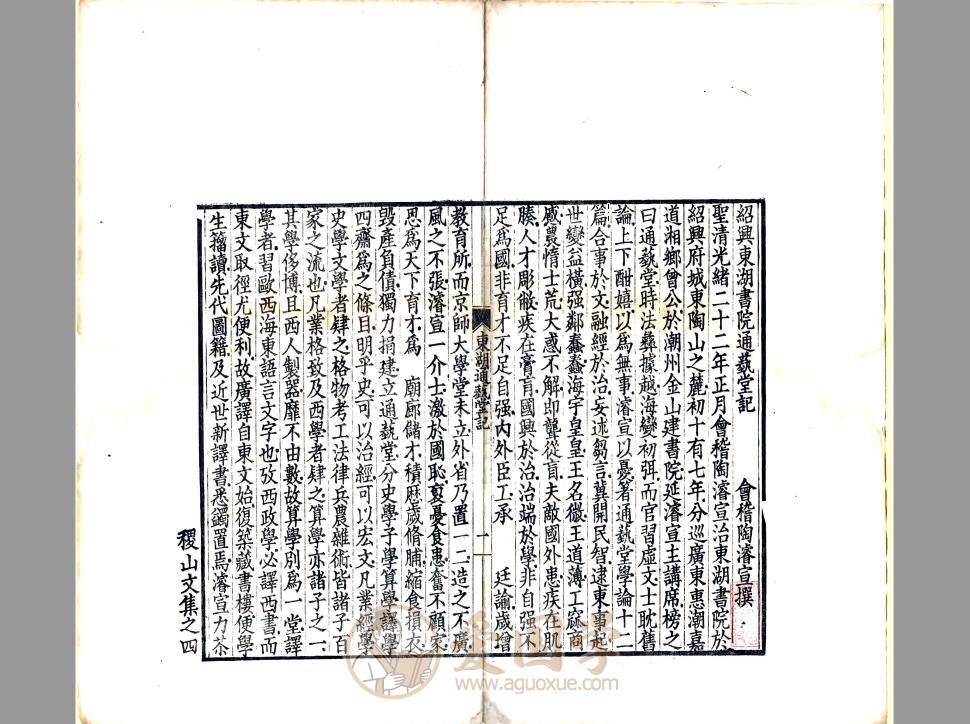 紹興東湖書院通藝堂記
會稽陶濬宣撰
聖清光緒二十二年正月會稽陶濬宣治東湖書院於
紹興府城東陶山之麓初十有七年分巡廣東惠潮嘉
道湘鄉曾公於潮州金山建書院延濬宣主講席榜之
曰通藝堂時法彝據越海變初弭而官習虛文士耽舊
論上下酣嬉以爲無事濬宣以憂著通藝堂學論十二
篇合事於文融經於治妄述芻言冀開民智逮東事起
世變益橫强鄰蠢蠢海宇皇皇王名徽王道薄工窳商
慼農惰士荒大惑不解即聾從盲夫敵國外患疾在肌
膝人才彫敝疾在膏肓國興於治治端於學非自强不
足爲國非育才不足自强内外臣工承 廷論歲增
教育所而京師大學堂未立外省乃置一二造之不廣
風之不張濬宣一介士激於國恥裒憂食患奮不顧家
思爲天下育才爲 廟廊儲才積歷歲脩脯縮食損衣
毀產負債獨力捐建立通藝堂分史學子學算學譯學
四齋爲之條目明乎史可以治經可以宏文凡業經學
史學文學者肆之格物考工法律兵農雜術皆諸子百
家之流也凡業格致及西學者肆之算學亦諸子之一
其學侈博且西人製器靡不由數故算學別爲一堂譯
學者習歐西海東語言文字也攷西政學必譯西書而
東文取徑尤便利故廣譯自東文始復築藏書樓便學
生籀讀先代圖籍及近世新譯書悉蠲置焉濬宣力苶
東湖通藝堂記
一
稷山文集之四
愛國學
www.aguoxue.com